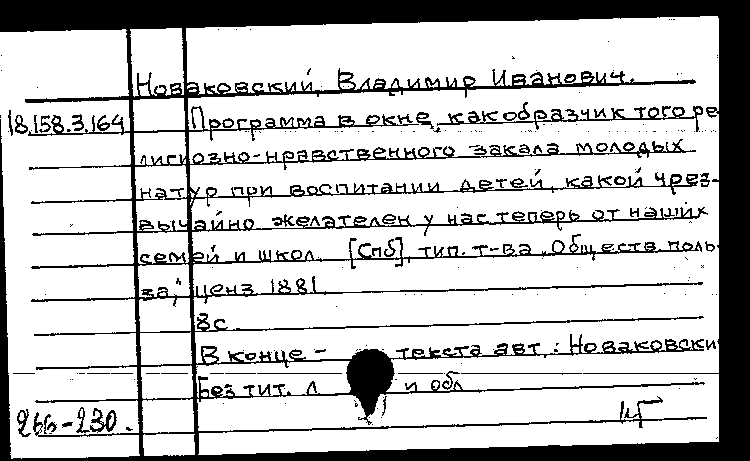 Новаковский, Владимир Иванович.
18.158.3.164 Программа в окне, как образчик того ре
лигиозно-нравственного закала молодых
натур при воспитании детей, какой чрез-
вычайно желателен у нас теперь от наших
семей и школ. [Спб], тип. т-ва „Обществ. поль-
за", ценз. 1881.
8с.
В конце - текста авт.: Новаковски
Без тит. л и обл
266-230.